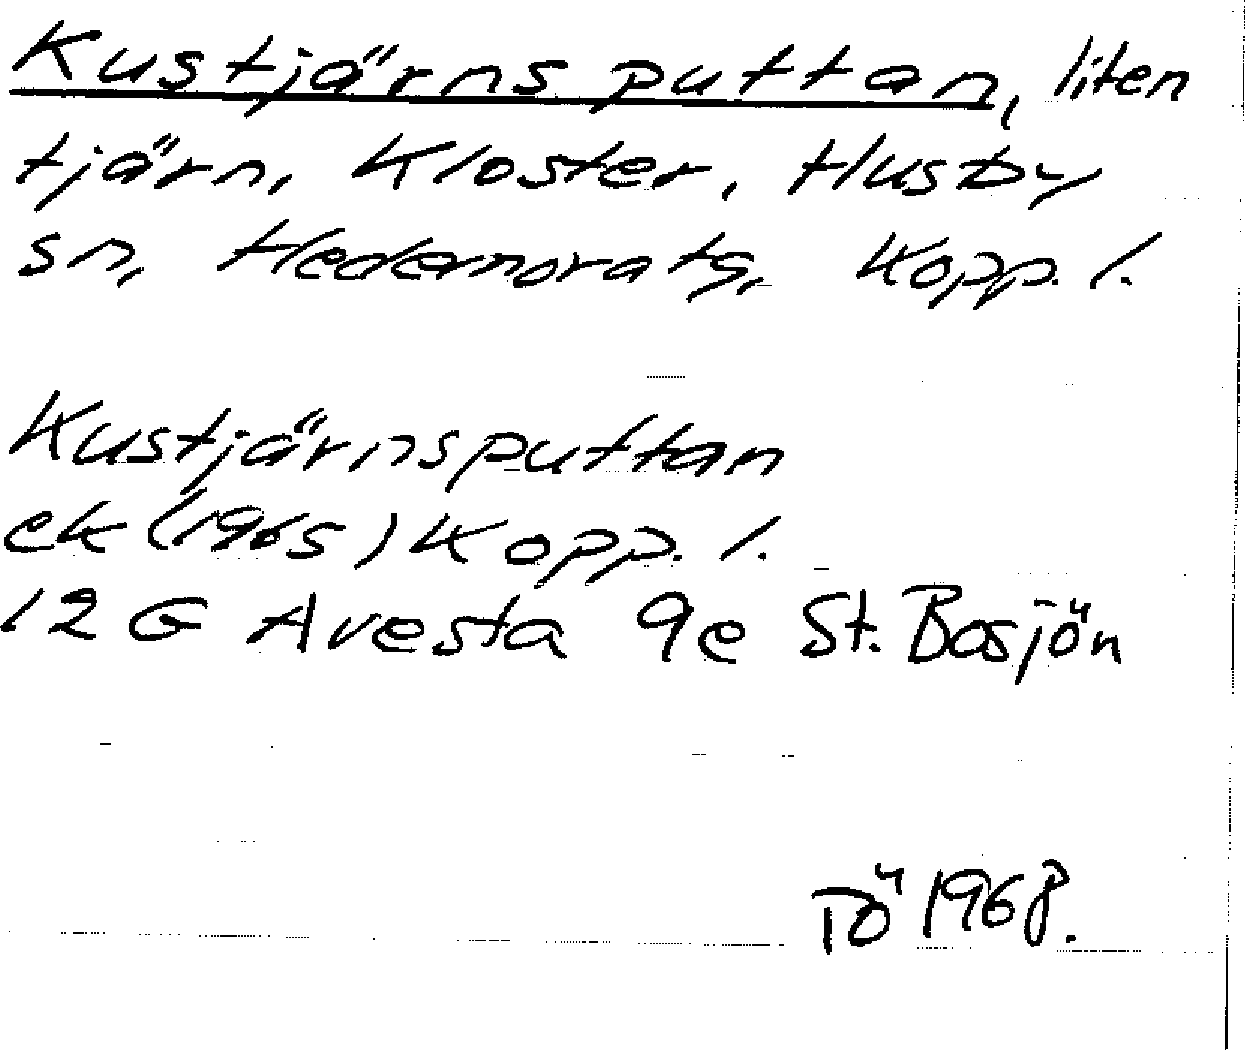 Kustjärnsputtan, liten
tjärn, Kloster, Husby
sn, Hedemora tg, Kopp. l.
Kustjärnsputtan
ek (1965) Kopp. l.
12 G Avesta 9e St. Bosjön
1968.